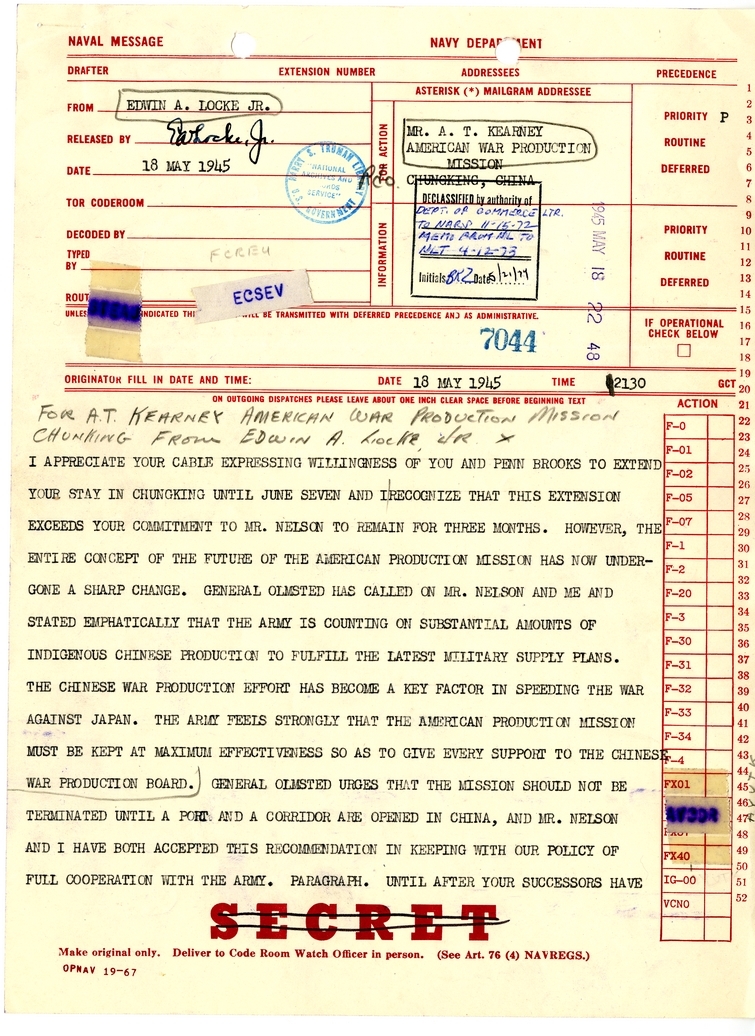 NAVAL MESSAGE
NAVY DEPARTMENT
DRAFTER
EXTENSION NUMBER
ADDRESSEES
PRECEDENCE
ASTERISK (*) MAILGRAM ADDRESSEE
FROM EDWIN A. LOCKE JR.
RELEASED BY EALocke, Jr.
DATE 18 MAY 1945
TOR CODEROOM
DECODED BY
TYPED BY
FOR ACTION
MR. A. T. KEARNEY
AMERICAN WAR PRODUCTION
MISSION
CHUNGKING, CHINA
PRIORITY P
ROUTINE
DEFERRED
HARRY S. TRUMAN LIBRARY
"NATIONAL
ARCHIVES AND
SERVICE"
U.S. GOVERNMENT
INFORMATION
DECLASSIFIED by authority of
DEPT. OF COMMERCE LTR.
TO NARS 11-15-72
MEMO FROM NL TO
NLT 4-12-73
Initials BKZ Date
1945 MAY 18 22 48
PRIORITY
ROUTINE
DEFERRED
ROUT
ECSEV
UNLESS INDICATED THI WILL BE TRANSMITTED WITH DEFERRED PRECEDENCE AND AS ADMINISTRATIVE.
7044
IF OPERATIONAL
CHECK BELOW
ORIGINATOR FILL IN DATE AND TIME: DATE 18 MAY 1945 TIME 2130 GCT
ON OUTGOING DISPATCHES PLEASE LEAVE ABOUT ONE INCH CLEAR SPACE BEFORE BEGINNING TEXT
FOR A.T. KEARNEY AMERICAN WAR PRODUCTION MISSION
CHUNKING FROM EDWIN A. LOCKE JR. X
I APPRECIATE YOUR CABLE EXPRESSING WILLINGNESS OF YOU AND PENN BROOKS TO EXTEND
YOUR STAY IN CHUNGKING UNTIL JUNE SEVEN AND I RECOGNIZE THAT THIS EXTENSION
EXCEEDS YOUR COMMITMENT TO MR. NELSON TO REMAIN FOR THREE MONTHS. HOWEVER, THE
ENTIRE CONCEPT OF THE FUTURE OF THE AMERICAN PRODUCTION MISSION HAS NOW UNDER-
GONE A SHARP CHANGE. GENERAL OLMSTED HAS CALLED ON MR. NELSON AND ME AND
STATED EMPHATICALLY THAT THE ARMY IS COUNTING ON SUBSTANTIAL AMOUNTS OF
INDIGENOUS CHINESE PRODUCTION TO FULFILL THE LATEST MILITARY SUPPLY PLANS.
THE CHINESE WAR PRODUCTION EFFORT HAS BECOME A KEY FACTOR IN SPEEDING THE WAR
AGAINST JAPAN. THE ARMY FEELS STRONGLY THAT THE AMERICAN PRODUCTION MISSION
MUST BE KEPT AT MAXIMUM EFFECTIVENESS SO AS TO GIVE EVERY SUPPORT TO THE CHINESE
WAR PRODUCTION BOARD. GENERAL OLMSTED URGES THAT THE MISSION SHOULD NOT BE
TERMINATED UNTIL A PORT AND A CORRIDOR ARE OPENED IN CHINA, AND MR. NELSON
AND I HAVE BOTH ACCEPTED THIS RECOMMENDATION IN KEEPING WITH OUR POLICY OF
FULL COOPERATION WITH THE ARMY. PARAGRAPH. UNTIL AFTER YOUR SUCCESSORS HAVE
ACTION
F-0
F-01
F-02
F-05
F-07
F-1
F-2
F-20
F-3
F-30
F-31
F-32
F-33
F-34
F-4
FX01
FX40
IG-00
VCNO
1
2
3
4
5
6
7
8
9
10
11
12
13
14
15
16
17
18
19
20
21
22
23
24
25
26
27
28
29
30
31
32
33
34
35
36
37
38
39
40
41
42
43
44
45
46
47
48
49
50
51
52
SECRET
Make original only. Deliver to Code Room Watch Officer in person. (See Art. 76 (4) NAVREGS.)
OPNAV 19-67